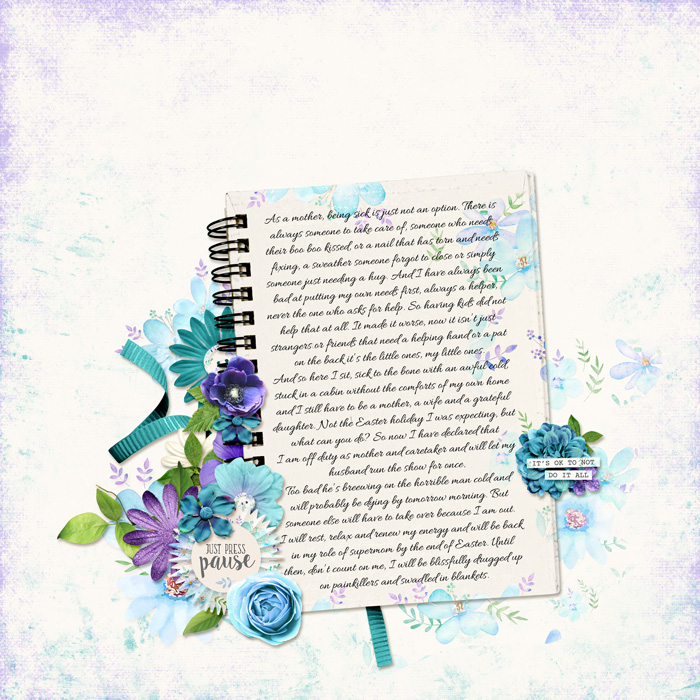 As a mother, being sick is just not an option. There is
always someone to take care of, someone who needs
their boo boo kissed, or a nail that has torn and needs
fixing, a sweather someone forgot to close or simply
someone just needing a hug. And I have always been
bad at putting my own needs first, always a helper,
never the one who asks for help. So having kids did not
help that at all. It made it worse, now it isn't just
strangers or friends that need a helping hand or a pat
on the back it's the little ones, my little ones
And so here I sit, sick to the bone with an awful cold,
stuck in a cabin without the comforts of my own home
and I still have to be a mother, a wife and a grateful
daughter. Not the Easter holiday I was expecting, but
what can you do? So now I have declared that
I am off duty as mother and caretaker and will let my
husband run the show for once.
Too bad he's breewing on the horrible man cold and
will probably be dying by tomorrow morning. But
someone else will have to take over because I am out.
I will rest, relax and renew my energy and will be back
in my role of supermom by the end of Easter. Until
then, don't count on me, I will be blissfully drugged up
on painkillers and swadled in blankets.
IT'S OK TO NOT
DO IT ALL
JUST PRESS
pause